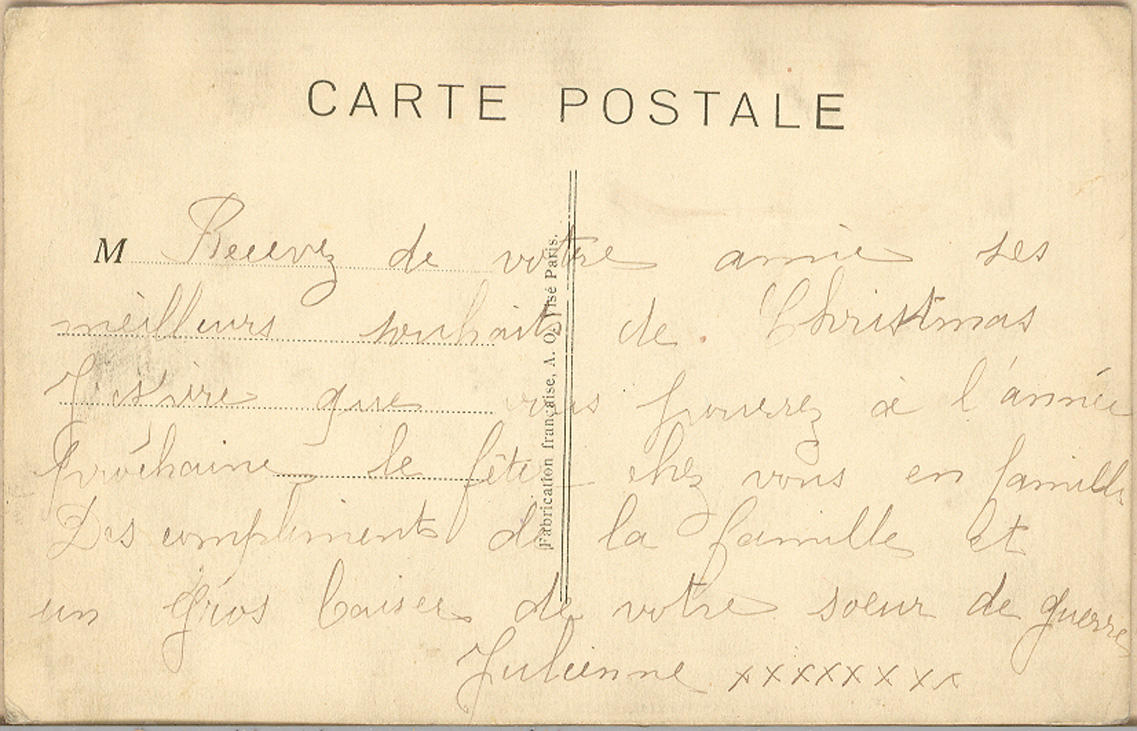 CARTE POSTALE
M Recevez de votre amie ses
meilleurs souhaits de Christmas
que vous pouvez à l'année
Prochaine le fêter chez vous en famille
Des compliments de la famille et
un Gros baiser de votre soeur de guerre
Julienne xxxxxxxx
Fabrication française, A. O. Visé Paris.